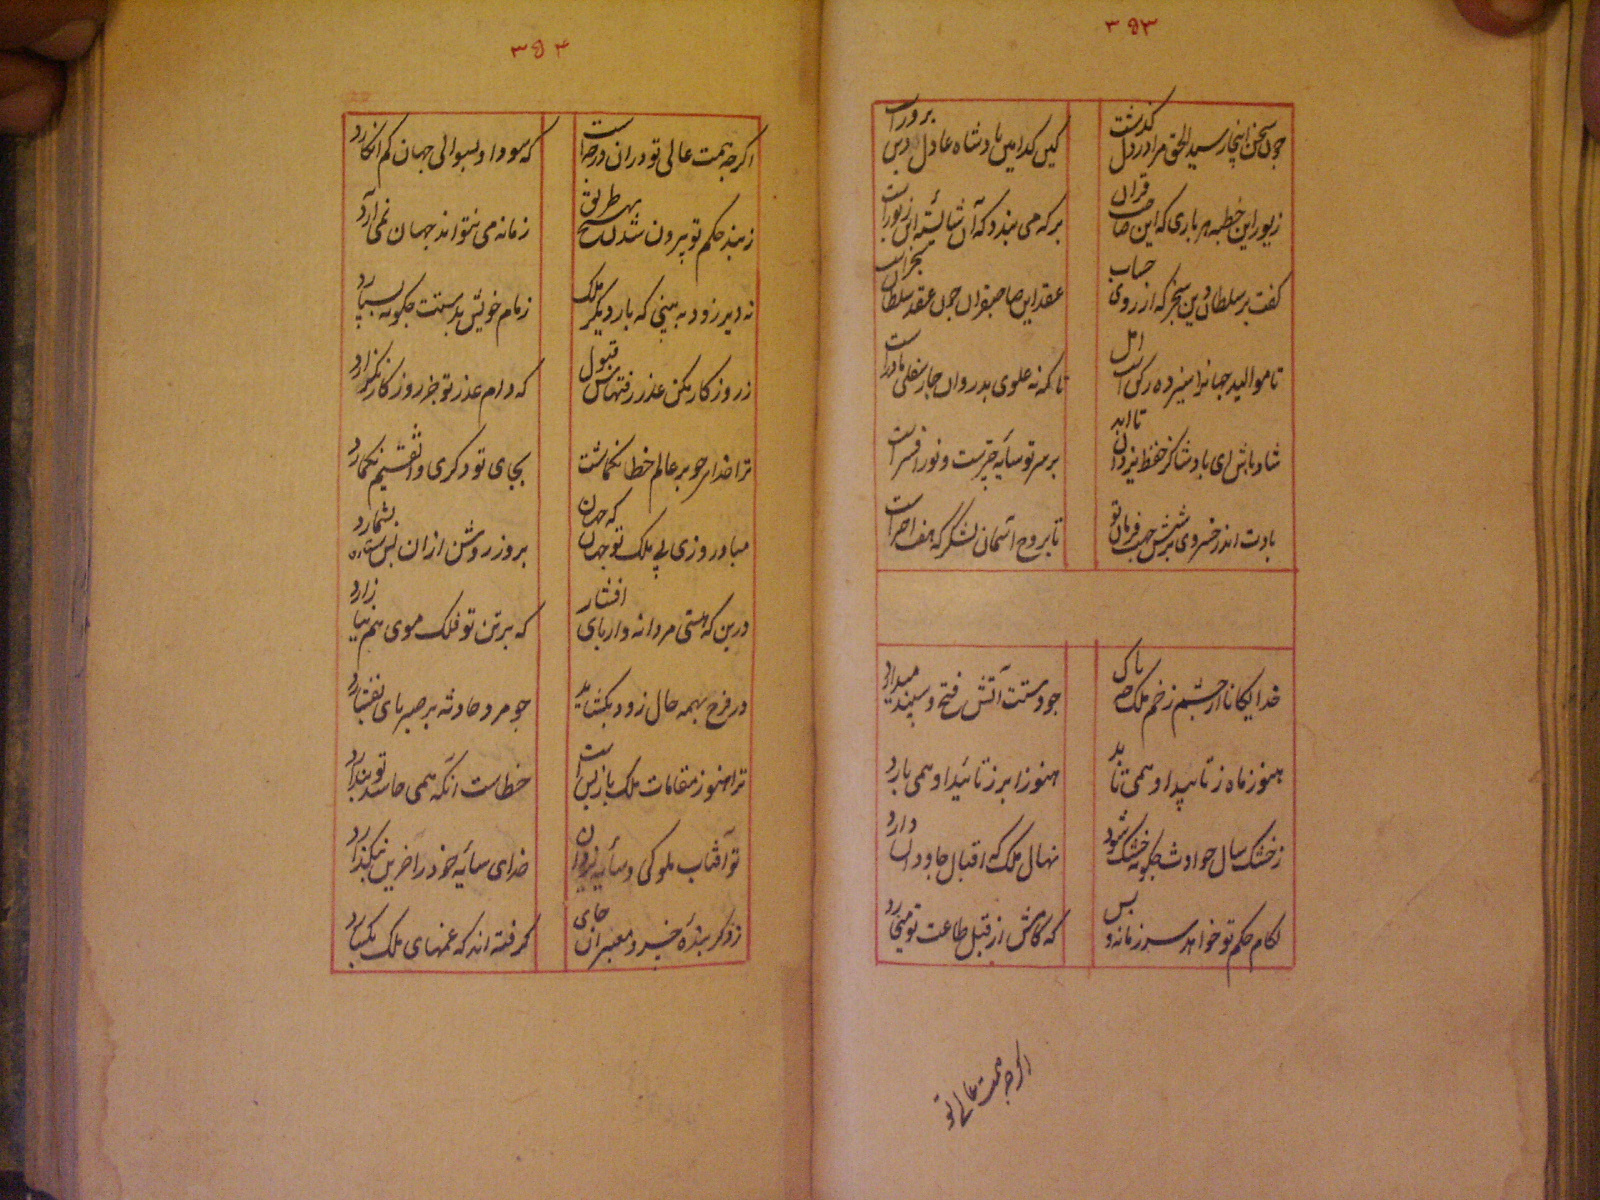 ۳۵۳
چون سخن اینجا رسید الحق مرا در دل گذشت
کین کدامین پادشاه عادل دین پرور است
زیور این خطبه هر باری که این صاحب قران
بر که می بندد که آن شائسته این زیور است
گفت بر سلطان دین سنجر که از روی حساب
عقد این صاحبقران چون عقد سلطان سنجر است
تا موالید جهانرا سیزده رکن است اصل
تا که نه علوی پدر وان چار سفلی مادر است
شاد باش ای پادشا کز حفظ یزدان تا ابد
بر سر تو سایه چتر است و نور افسر است
بادت اندر خسروی بر شش جهت فرمان تو
تا بروج آسمان لشکر که هفت اختر است
خدایگانا از چشم زخم ملک چه باک
چو دستت آتش فتح و سپند میدارد
هنوز ماه ز تائید او همی تابد
هنوز ابر ز تائید او همی بارد
ز خشک سال حوادث چگونه خشک شود
نهال ملک که اقبال جاودان دارد
لگام حکم تو خواهد سر زمانه و بس
که گامش از قبل طاعت تو میخارد
اگرچه همت عالی تو
۳۵۴
اگرچه همت عالی تو در آن درجه است
که سودا و بسوالی جهان کم انگارد
ز بند حکم تو بیرون شدن بهیچ طریق
زمانه می نتواند جهان نمی آرد
نه دیر زود به بینی که بار دیگر ملک
زمام خویش بدستت چگونه بسپارد
ز روزگار مکن عذر رفتهاش قبول
که دام عذر تو جز روزگار نگزارد
ترا خدای چو بر عالم خطا نگماشت
بجای تو دگری والله قسیم نگمارد
مباد روزی بی ملک تو جهان که جهان
بروز روشن از آن پس ستاره بشمارد
درین که هستی مردانه وار پای افشار
که بر تن تو فلک موی هم نیازارد
در فرح بهمه حال زود بگشاید
چو مرد حادثه بر صبر پای بفشارد
ترا هنوز مقامات ملک باز پس است
خطاست آنکه همی حاسد تو پندارد
تو آفتاب ملوکی و سایه یزدان
خدای سایه خود را چنین نگذارد
گرفته اند که غمهای ملک بگسارد